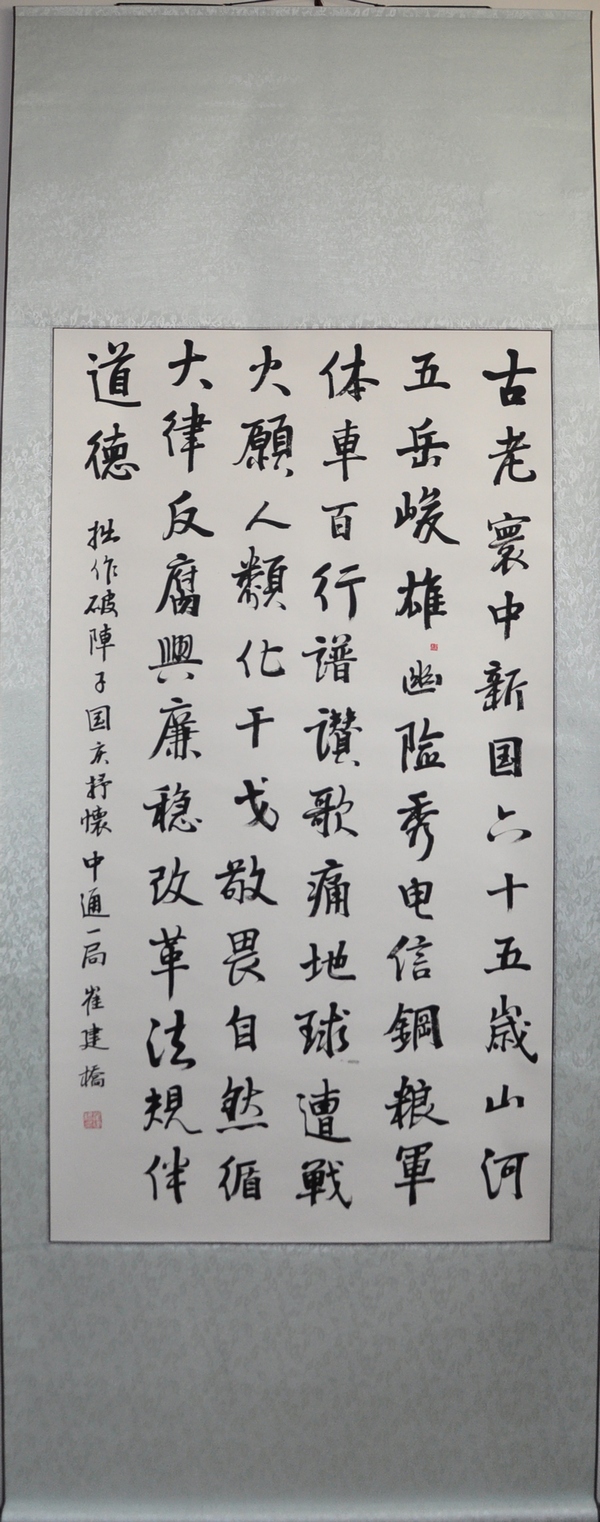 古老寰中新国六十五歲山河
五岳峻雄幽險秀电信鋼粮軍
体車百行譜讃歌痛地球遭戰
火願人類化干戈敬畏自然循
大律反腐興廉稳改革法規伴
道德
拙作破陣子国庆抒懷中通一局崔建橋